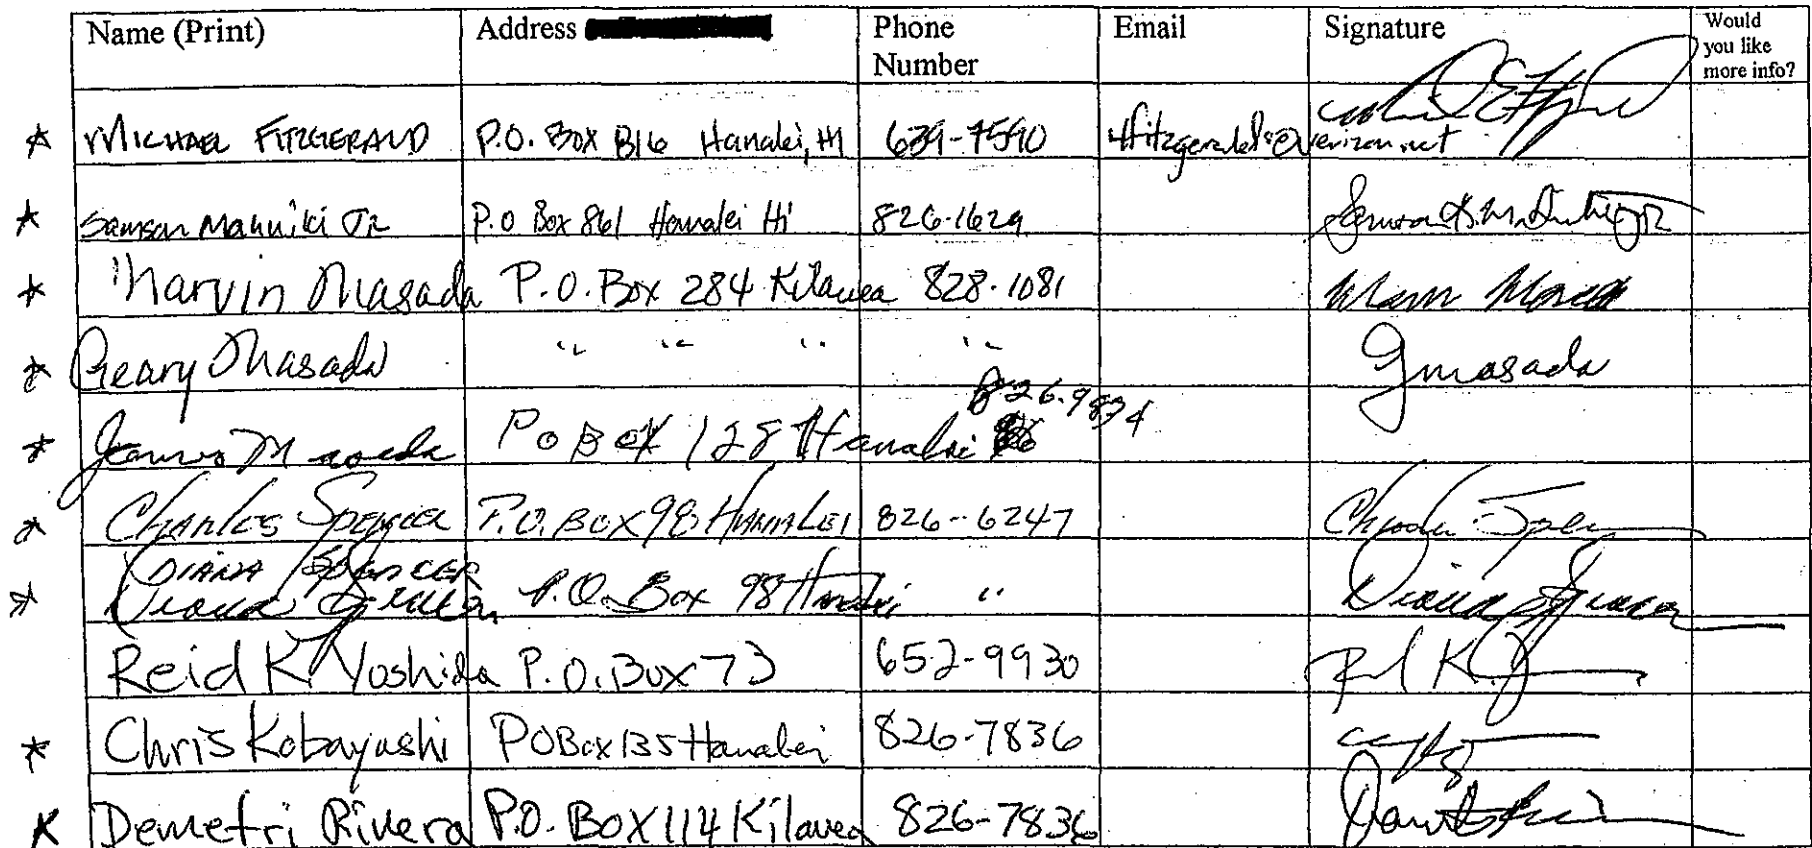 Name (Print) Address Phone Number Email Signature Would you like more info?
MICHAEL FITZGERALD P.O. Box B16 Hanalei, HI 639-7590
Samson Mahuiki Jr P.O Box 861 Hanalei Hi 826-1629
Marvin Masada P.O. Box 284 Kilauea 828-1081
Geary Masada " " " " Gmasada
James Masada PO BOX 128 Hanalei 826-9834
Charles Spencer P.O. BOX 98 HANALEI 826-6247
DIANA SPENCER
Diana Spencer P.O. Box 98 Hanalei " Diana Spencer
Reid K. Yoshida P.O. Box 73 652-9930
Chris Kobayashi PO Box 135 Hanalei 826-7836
Demetri Rivera P.O. BOX 114 Kilauea 826-7836